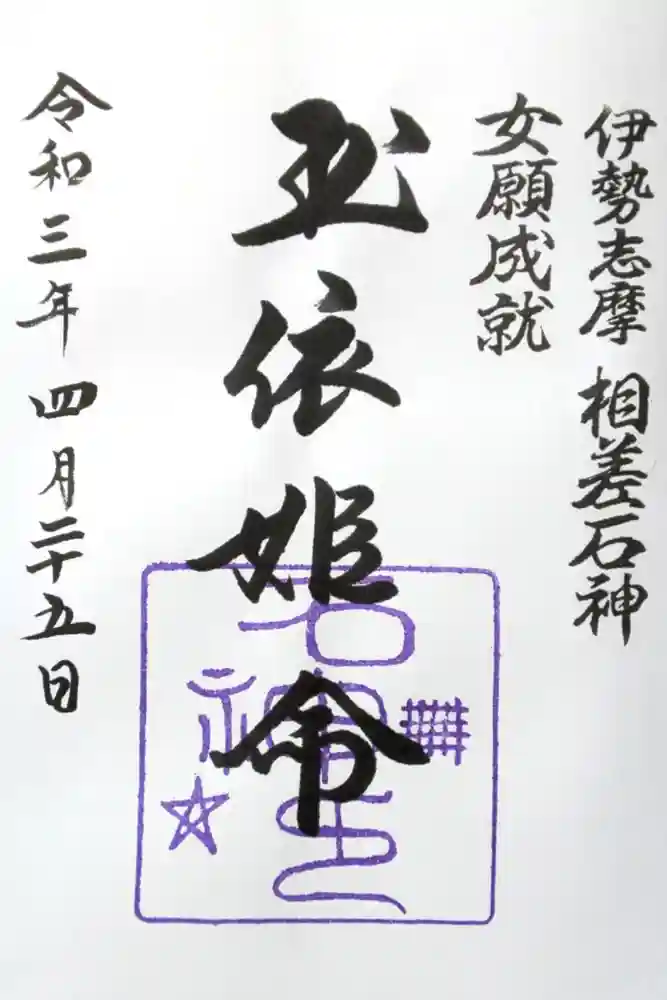 伊勢志摩 相差石神
女願成就
玉依姫命
石神之
令和三年 四月二十五日